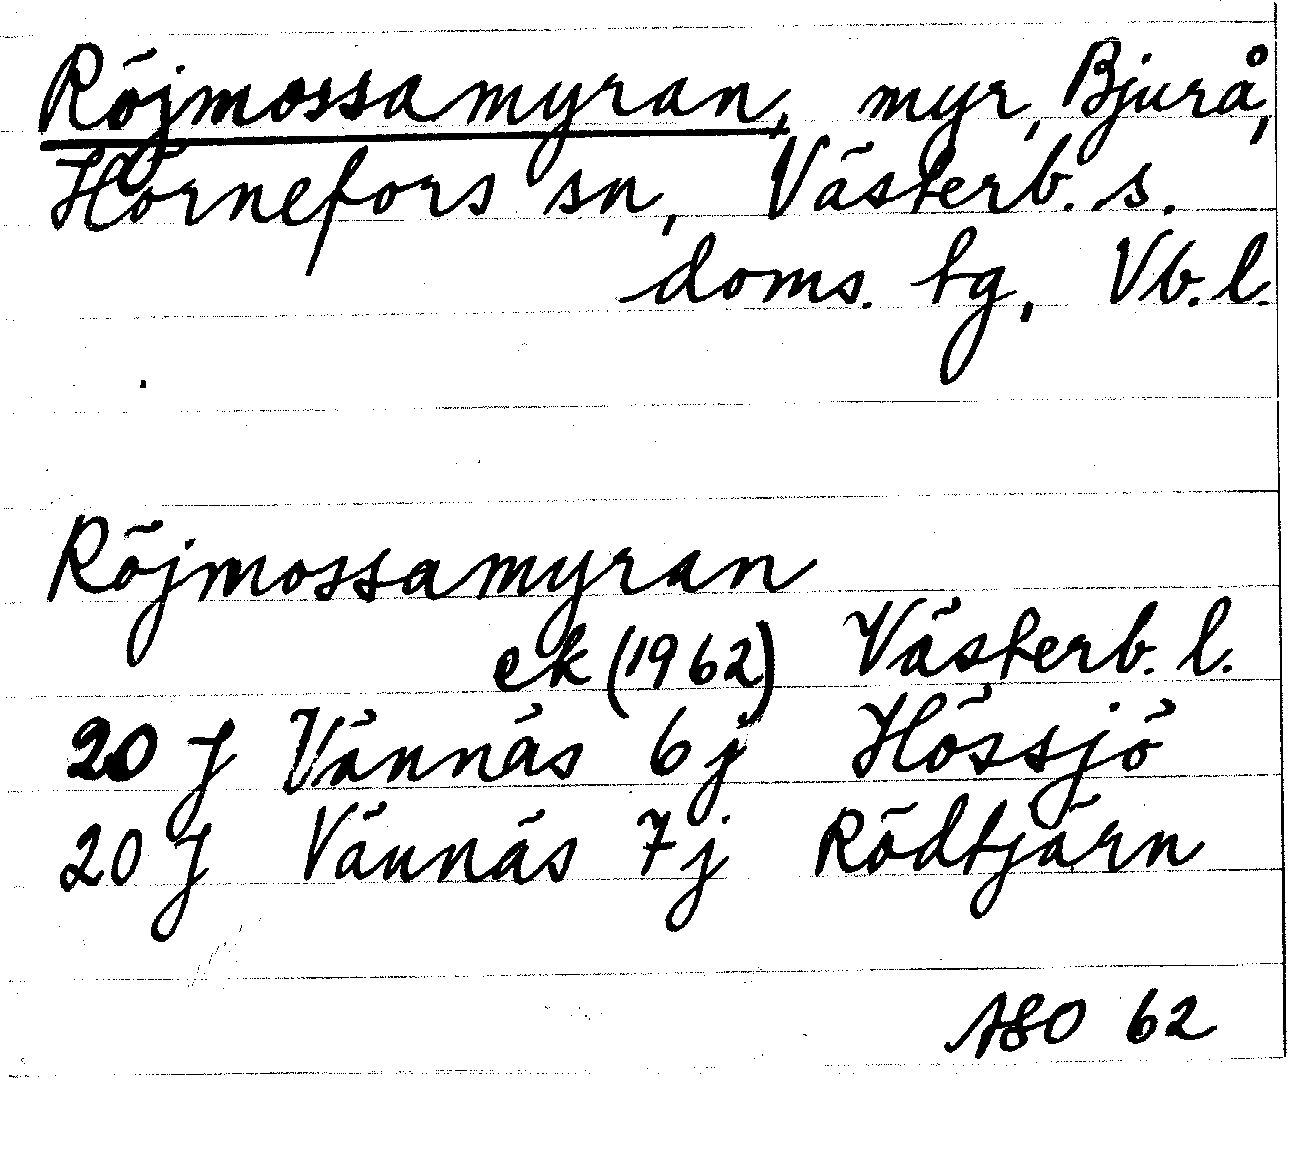 Röjmossamyran, myr, Bjurå,
Hörnefors sn, Västerb. s.
doms. tg, Vb. l.
Röjmossamyran
ek (1962) Västerb. l.
20 J Vännäs 6 j Hössjö
20 J Vännäs 7 j Rödtjärn
ASO 62